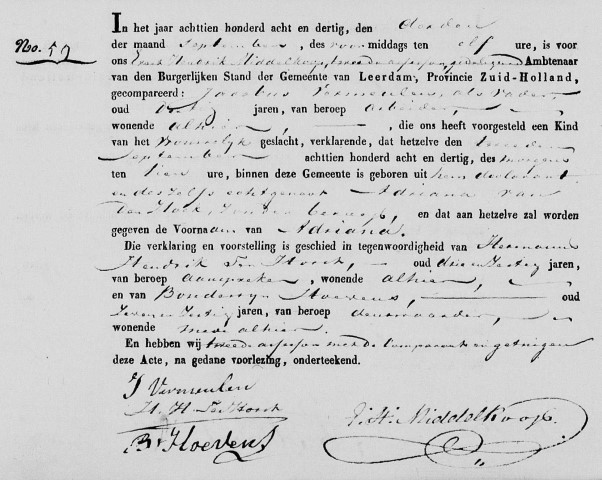 No. 52
In het jaar achttien honderd acht en dertig, den derden
der maand September, des voormiddags ten elf ure, is voor
ons Hendrik Middelkoop, tweede assessor Ambtenaar
van den Burgerlijken Stand der Gemeente van Leerdam, Provincie Zuid-Holland,
gecompareerd: Jacobus Vermeulen, als vader,
oud jaren, van beroep arbeider,
wonende alhier, die ons heeft voorgesteld een Kind
van het Vrouwelijk geslacht, verklarende, dat hetzelve den tweeden
September achttien honderd acht en dertig, des morgens
ten vier ure, binnen deze Gemeente is geboren uit hem declarant
en deszelfs echtgenoot Adriana van
den Hoek, zonder beroep, en dat aan hetzelve zal worden
gegeven de Voornaam van Adriana.
Die verklaring en voorstelling is geschied in tegenwoordigheid van Hermanus
Hendrik Ter Horst, oud drie en zestig jaren,
van beroep aanspreker, wonende alhier,
en van Bonderyn Hoevens, oud
zeven en zestig jaren, van beroep
wonende mede alhier.
En hebben wij tweede assessor met de Comparant en getuigen
deze Acte, na gedane voorlezing, onderteekend.
J Vermeulen
H. H. Ter Horst
Br Hoevens
E. H. Middelkoop.